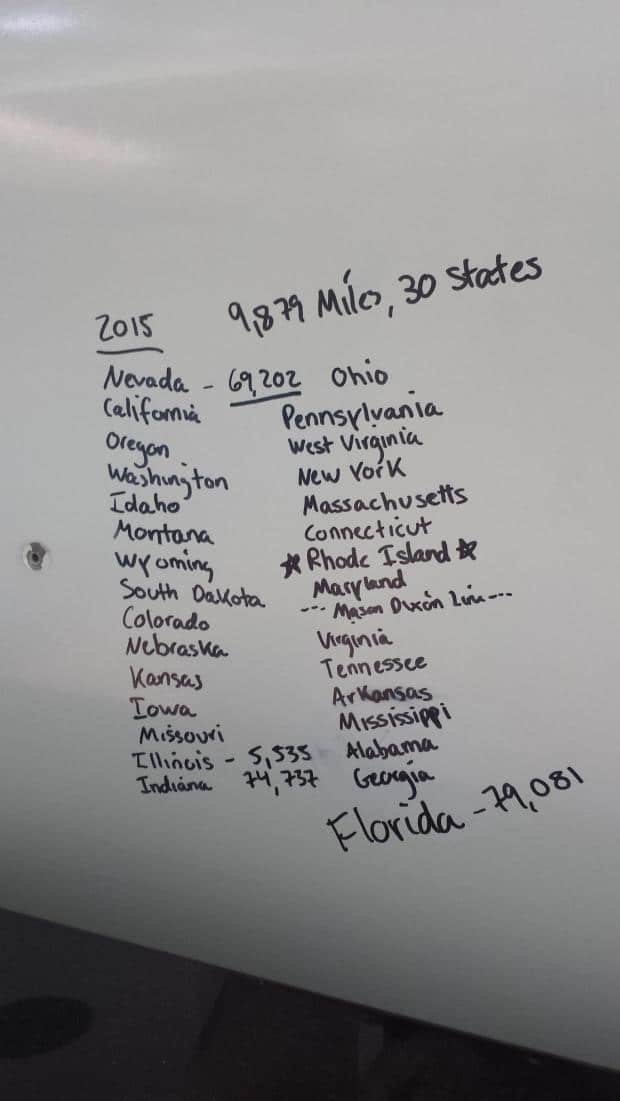 2015 9,879 Miles, 30 States
Nevada - 69,202
California
Oregon
Washington
Idaho
Montana
Wyoming
South Dakota
Colorado
Nebraska
Kansas
Iowa
Missouri
Illinois - 5,535
Indiana 74,737
Ohio
Pennsylvania
West Virginia
New York
Massachusetts
Connecticut
☆ Rhode Island ☆
Maryland
--- Mason Dixon Line ---
Virginia
Tennessee
Arkansas
Mississippi
Alabama
Georgia
Florida - 79,081